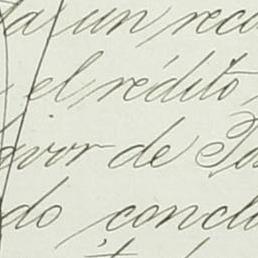 un rec
el rédito
avor de
do concl